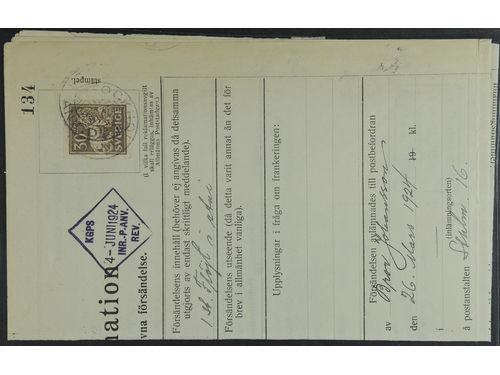 134
stämpel.
30
SVERIGE
(I vilka fall reklamationsavgift
skall erläggas, inhämtas av
Allmänna Poststadgan.)
KGPS
4-JUNI1924
INR.-P.ANV.
REV.
nation
vna försändelse.
Försändelsens innehåll (behöver ej angivas då detsamma
utgjorts av endast skriftligt meddelande).
1 st.
Försändelsens utseende (då detta varit annat än det för
brev i allmänhet vanliga).
Upplysningar i fråga om frankeringen:
Försändelsen avlämnades till postbefordran
av Bror Johansson
den 26. Mars 1924 19 kl.
i
(inlämningsorten)
å postanstalten Sthlm 16.